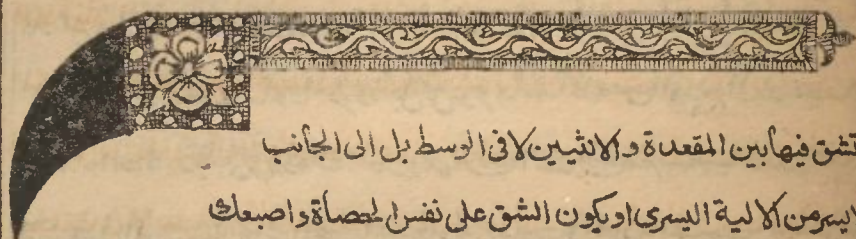 تشق فيها بين المقعدة و الانثيين لا فى الوسط بل الى الجانب
اليسر من الالية اليسرى او يكون الشق على نفس الحصاة و اصبعك